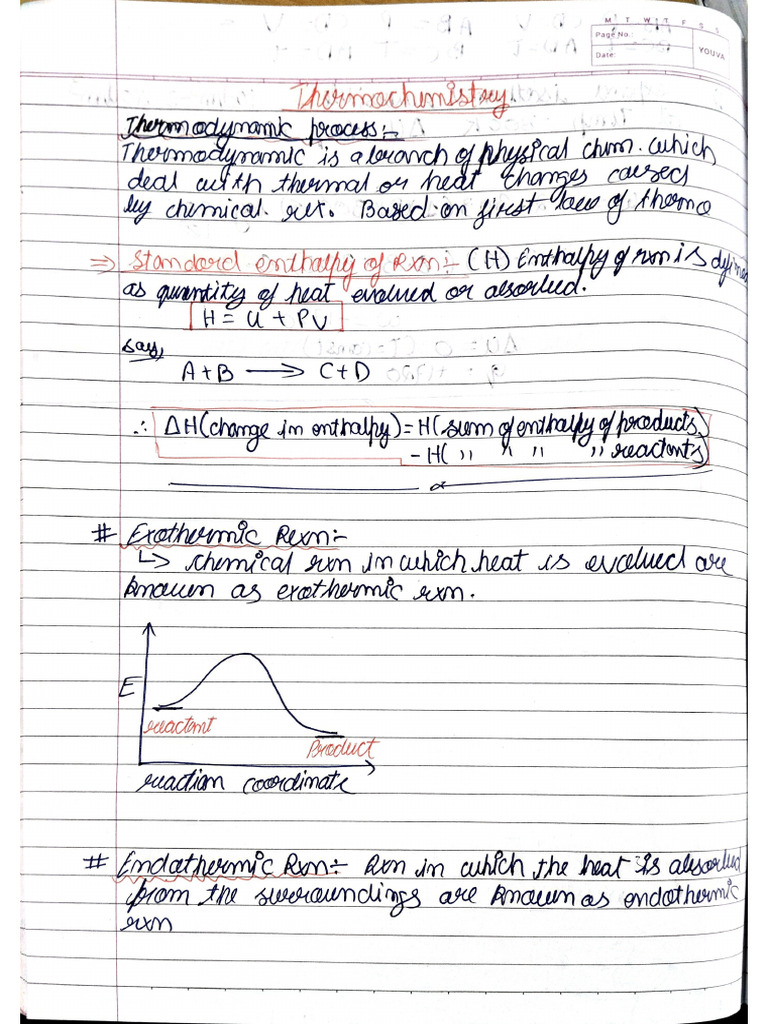 M T W T F S S
Page No.:
Date:
YOUVA
Thermochemistry
Thermodynamic process:-
Thermodynamic is a branch of physical chem. which
deal with thermal or heat changes caused
by chemical rxt. Based on first law of thermo
⇒ Standard enthalpy of Rxn:- (H) Enthalpy of rxn is defined
as quantity of heat evolved or absorbed.
H = U + PV
Say,
A + B ⟶ C + D
∴ ΔH (change in enthalpy) = H (sum of enthalpy of products)
- H ( ,, ,, ,, ,, reactants)
# Exothermic Rexn:-
↳ chemical rxn in which heat is evolved are
known as exothermic rxn.
E
reactant
Product
reaction coordinate
# Endothermic Rxn:- Rxn in which the heat is absorbed
from the surroundings are known as endothermic
rxn